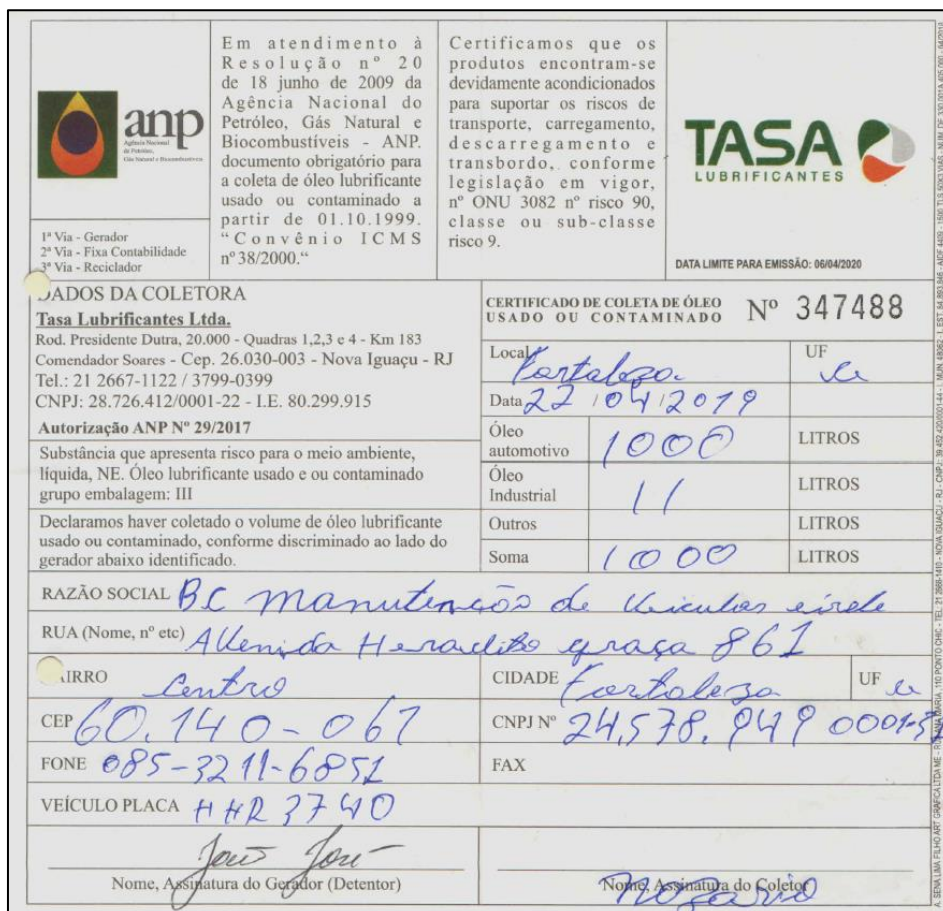 anp
Agência Nacional
do Petróleo,
Gás Natural e Biocombustíveis
1ª Via - Gerador
2ª Via - Fixa Contabilidade
3ª Via - Reciclador
Em atendimento à
Resolução nº 20
de 18 junho de 2009 da
Agência Nacional do
Petróleo, Gás Natural e
Biocombustíveis - ANP.
documento obrigatório para
a coleta de óleo lubrificante
usado ou contaminado a
partir de 01.10.1999.
“Convênio ICMS
nº 38/2000.“
Certificamos que os
produtos encontram-se
devidamente acondicionados
para suportar os riscos de
transporte, carregamento,
descarregamento e
transbordo, conforme
legislação em vigor,
nº ONU 3082 nº risco 90,
classe ou sub-classe
risco 9.
TASA
LUBRIFICANTES
DATA LIMITE PARA EMISSÃO: 06/04/2020
DADOS DA COLETORA
Tasa Lubrificantes Ltda.
Rod. Presidente Dutra, 20.000 - Quadras 1,2,3 e 4 - Km 183
Comendador Soares - Cep. 26.030-003 - Nova Iguaçu - RJ
Tel.: 21 2667-1122 / 3799-0399
CNPJ: 28.726.412/0001-22 - I.E. 80.299.915
Autorização ANP Nº 29/2017
Substância que apresenta risco para o meio ambiente,
líquida, NE. Óleo lubrificante usado e ou contaminado
grupo embalagem: III
Declaramos haver coletado o volume de óleo lubrificante
usado ou contaminado, conforme discriminado ao lado do
gerador abaixo identificado.
CERTIFICADO DE COLETA DE ÓLEO
USADO OU CONTAMINADO Nº 347488
Local Fortaleza UF Ce
Data 22/04/2019
Óleo automotivo 1000 LITROS
Óleo Industrial // LITROS
Outros LITROS
Soma 1000 LITROS
RAZÃO SOCIAL BC manutenção de Veiculos eirele
RUA (Nome, nº etc) Avenida Heraclito graça 861
BAIRRO Centro CIDADE Fortaleza UF Ce
CEP 60.140-061 CNPJ Nº 24.578.949 0001-
FONE 085-3211-6851 FAX
VEÍCULO PLACA HHR 3740
Nome, Assinatura do Gerador (Detentor)
Nome, Assinatura do Coletor